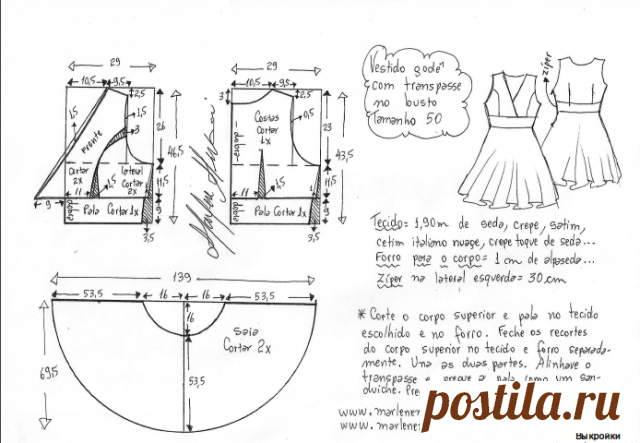 29
10,5
9,5
2,5
1,5
1,5
3
Frente
26
46,5
Cortar
2x
lateral
Cortar
2x
11
1,5
11,5
9
dobra
Pala Cortar 1x
9
3,5
29
10,5
9,5
2,5
3
0,5
Costas
Cortar
1x
dobra
23
43,5
11
1,5
1
11,5
dobra
Pala Cortar 1x
9
3,5
Vestido godê
com transpasse
no busto
Tamanho 50
zíper
Tecido= 1,90m de seda, crepe, setim,
cetim italiano nuage, crepe toque de seda...
Forro para o corpo= 1 cm de alpaseda...
Zíper na lateral esquerda= 30 cm
139
53,5
16
16
53,5
16
Saia
Cortar 2x
69,5
53,5
* Corte o corpo superior e pala no tecido
escolhido e no forro. Feche os recortes
do corpo superior no tecido e forro separada-
mente. Una as duas partes. Alinhave o
transpasse e prove a pala como um san-
duíche. Pre
www.marlene
www.marlene
postila.ru
Выкройки